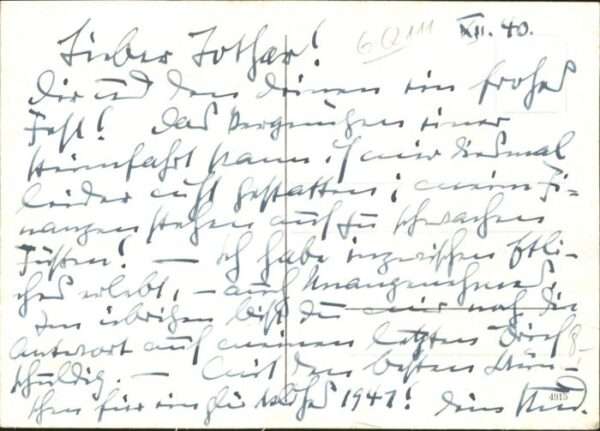 Lieber Lothar! 6Q111 XII. 40.
Dir und den deinen ein frohes
Fest! Das Vergnügen einer
Heimfahrt kann ich mir diesmal
leider nicht gestatten; meine Fi-
nanzen stehen auf zu schwachen
Füssen! — ich habe inzwischen Etli-
ches erlebt, – auch Unangenehmes.
Im übrigen bist du mir noch die
Antwort auf meinen letzten Brief
schuldig. — Mit den besten Wün-
schen für ein glückliches 1941! dein
4915